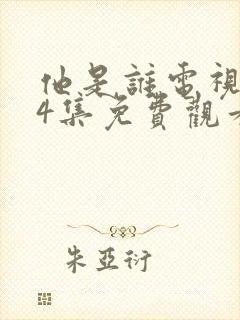 他是誰電視
4集免費觀看
朱亞衍